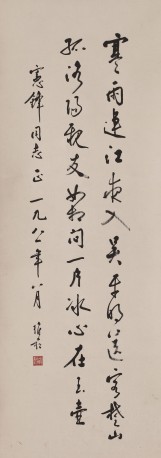 寒雨连江夜入吴平明送客楚山
孤洛阳亲友如相问一片冰心在玉壶
宪锋同志正一九八一年八月